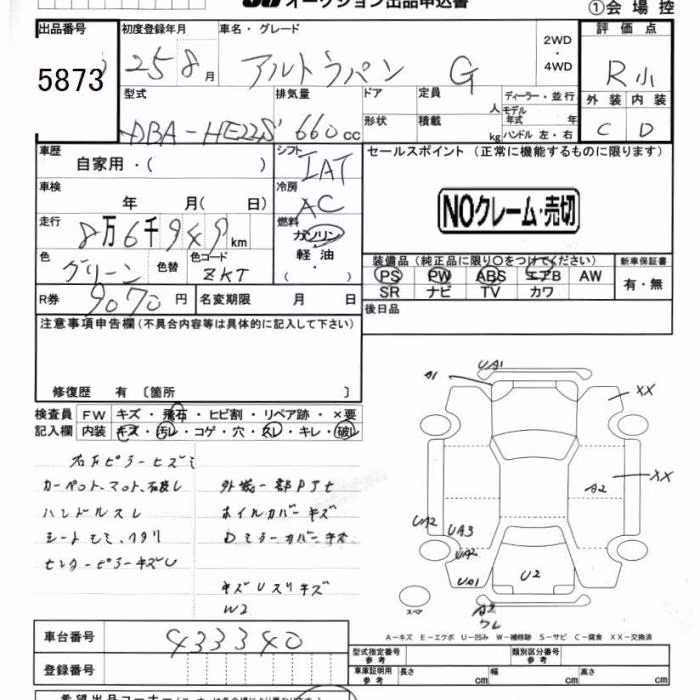 オークション出品申込書
①会場控
出品番号 初度登録年月 車名・グレード 評価点
5873 25 8月 アルトラパン G 2WD・4WD R小
型式 排気量 ドア 定員 人 ディーラー・並行 外装 内装
DBA-HE22S 660cc 形状 積載 kg モデル年式 年 ハンドル 左・右 C D
車歴 自家用・( ) シフト IAT セールスポイント (正常に機能するものに限ります)
車検 年 月( 日) 冷房 AC
NOクレーム・売切
走行 8万6千949km 燃料 ガソリン・軽油・( )
色 グリーン 色替 色コード ZKT
装備品(純正品に限り○をつけてください) 新車保証書
PS PW ABS エアB AW 有・無
SR ナビ TV カワ
R券 9070円 名変期限 月 日 後日品
注意事項申告欄(不具合内容等は具体的に記入して下さい)
修復歴 有 〔箇所 〕
検査員 FW キズ・飛石・ヒビ割・リペア跡・×要
記入欄 内装 キズ・汚レ・コゲ・穴・スレ・キレ・破レ
カーペット、マット
ハンドルスレ
センターピラーキズ
外装一部
ホイルカバーキズ
Dミラーカバーキズ
W2
A1
UA1
XX
XX
A2
UA2
UA3
UA2
UA1
U2
A2
スペア
A-キズ E-エクボ U-凹み W-補修跡 S-サビ C-腐食 XX-交換済
車台番号 433340
登録番号
型式指定番号 参考 類別区分番号 参考
車庫証明用 参考 長さ cm 幅 cm 高さ cm
希望出品コーナー